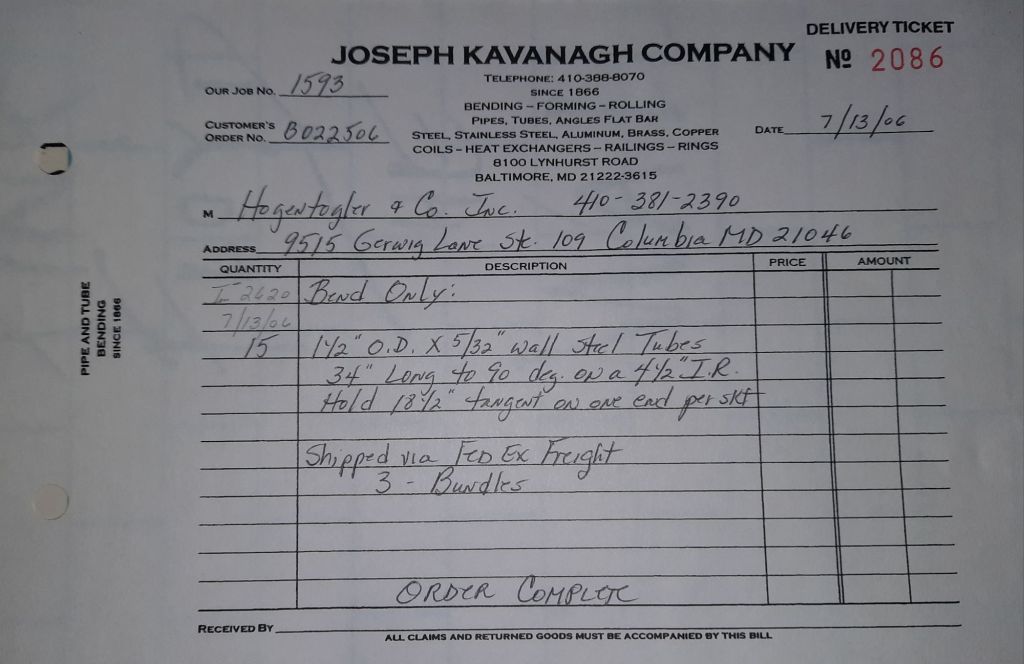 DELIVERY TICKET
JOSEPH KAVANAGH COMPANY
Nº 2086
TELEPHONE: 410-388-8070
SINCE 1866
BENDING – FORMING – ROLLING
PIPES, TUBES, ANGLES FLAT BAR
STEEL, STAINLESS STEEL, ALUMINUM, BRASS, COPPER
COILS – HEAT EXCHANGERS – RAILINGS – RINGS
8100 LYNHURST ROAD
BALTIMORE, MD 21222-3615
OUR JOB NO. 1593
CUSTOMER'S ORDER NO. B022506
DATE 7/13/06
M Hogentogler & Co. Inc. 410-381-2390
ADDRESS 9515 Gerwig Lane Ste. 109 Columbia MD 21046
QUANTITY DESCRIPTION PRICE AMOUNT
I-2620 Bend Only:
7/13/06
15 1 1/2" O.D. X 5/32" wall Steel Tubes
34" Long to 90 deg. on a 4 1/2" I.R.
Hold 18 1/2" tangent on one end per skt
Shipped via FED EX Freight
3 - Bundles
ORDER COMPLETE
RECEIVED BY
ALL CLAIMS AND RETURNED GOODS MUST BE ACCOMPANIED BY THIS BILL
PIPE AND TUBE
BENDING
SINCE 1866